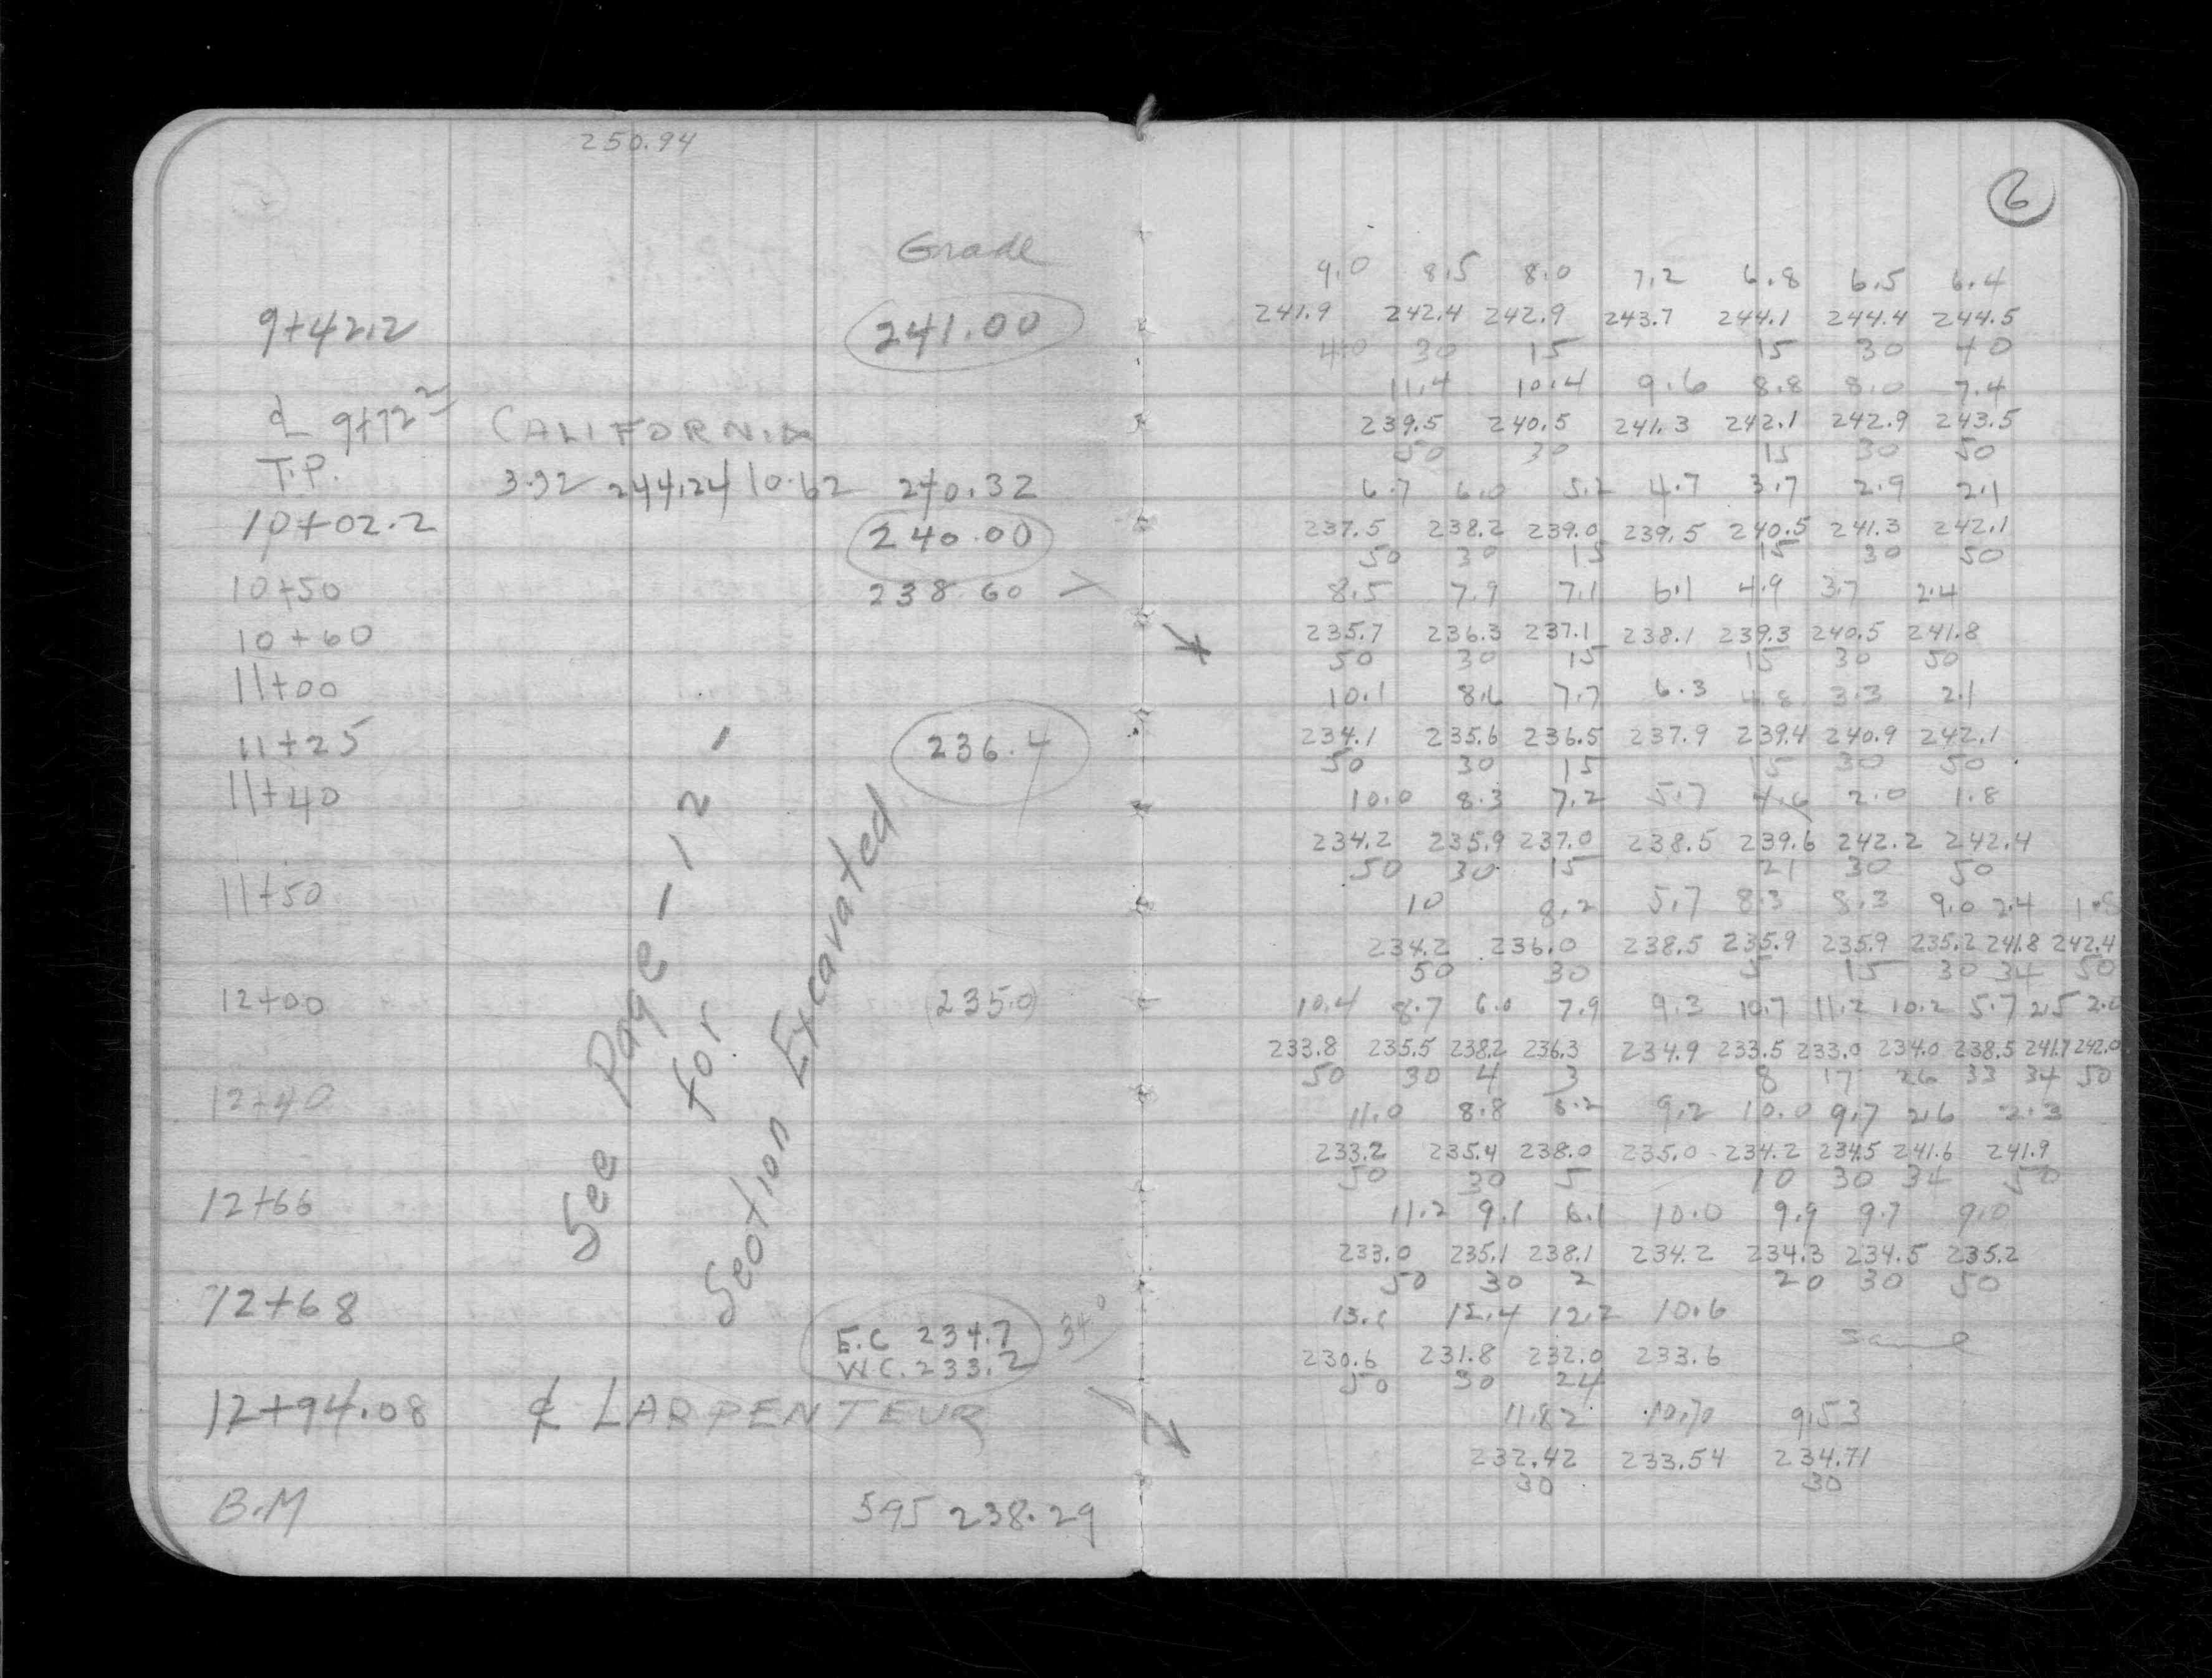 250.94
Grade
9+42.2 241.00
℄ 9+72² CALIFORNIA
T.P. 3.92 244.24 10.62 240.32
10+02.2 240.00
10+50 238.60 >
10+60
11+00
11+25 236.4
11+40
11+50
12+00 (235.0)
12+40
12+66
12+68
E.C 234.7 34°
W.C. 233.2
12+94.08 ℄ LARPENTEUR
B.M 595 238.29
See Page - 12 -
for
Section Excavated
6
9.0 8.5 8.0 7.2 6.8 6.5 6.4
241.9 242.4 242.9 243.7 244.1 244.4 244.5
40 30 15 15 30 40
11.4 10.4 9.6 8.8 8.0 7.4
239.5 240.5 241.3 242.1 242.9 243.5
50 30 15 30 50
6.7 6.0 5.2 4.7 3.7 2.9 2.1
237.5 238.2 239.0 239.5 240.5 241.3 242.1
50 30 15 15 30 50
8.5 7.9 7.1 6.1 4.9 3.7 2.4
235.7 236.3 237.1 238.1 239.3 240.5 241.8
50 30 15 15 30 50
10.1 8.6 7.7 6.3 4.8 3.3 2.1
234.1 235.6 236.5 237.9 239.4 240.9 242.1
50 30 15 15 30 50
10.0 8.3 7.2 5.7 4.6 2.0 1.8
234.2 235.9 237.0 238.5 239.6 242.2 242.4
50 30 15 21 30 50
10 8.2 5.7 8.3 8.3 9.0 2.4 1.8
234.2 236.0 238.5 235.9 235.9 235.2 241.8 242.4
50 30 5 15 30 34 50
10.4 8.7 6.0 7.9 9.3 10.7 11.2 10.2 5.7 2.5 2.2
233.8 235.5 238.2 236.3 234.9 233.5 233.0 234.0 238.5 241.7 242.0
50 30 4 3 8 17 26 33 34 50
11.0 8.8 6.2 9.2 10.0 9.7 2.6 2.3
233.2 235.4 238.0 235.0 234.2 234.5 241.6 241.9
50 30 5 10 30 34 50
11.2 9.1 6.1 10.0 9.9 9.7 9.0
233.0 235.1 238.1 234.2 234.3 234.5 235.2
50 30 2 20 30 50
13.6 12.4 12.2 10.6 same
230.6 231.8 232.0 233.6
50 30 24
11.82 10.70 9.53
232.42 233.54 234.71
30 30